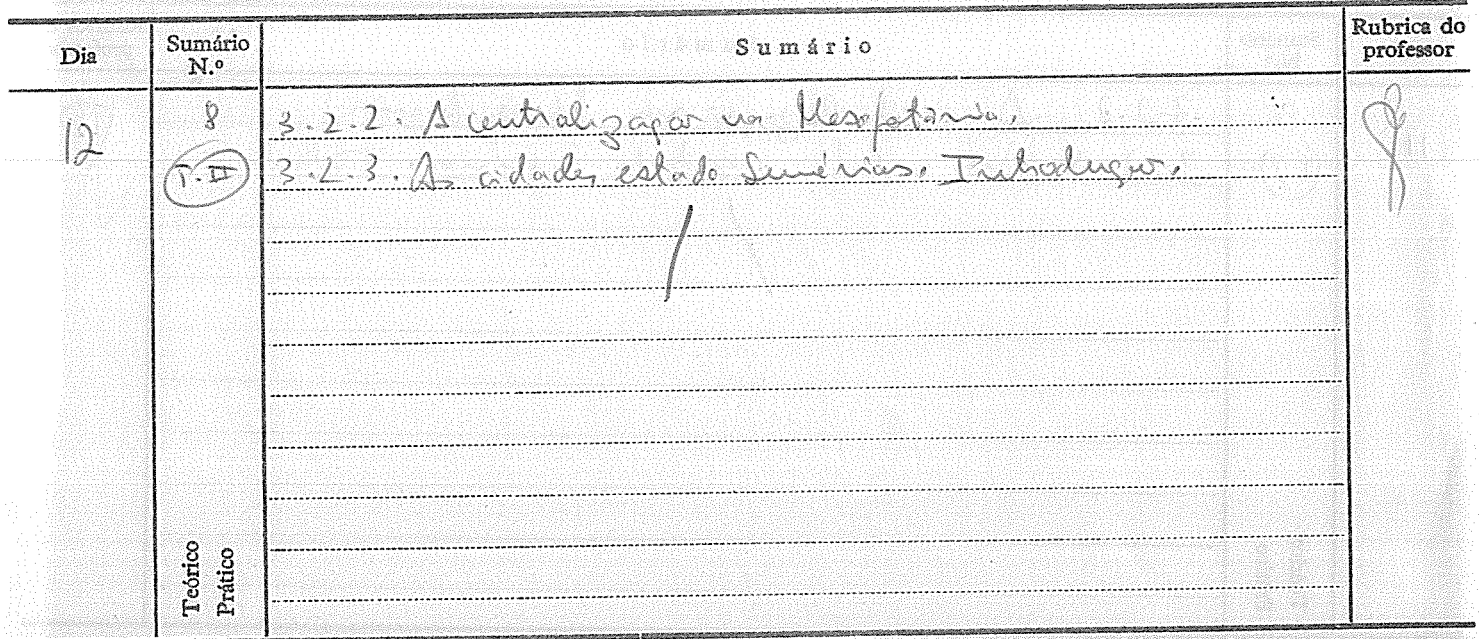 Dia Sumário N.º Sumário Rubrica do professor
12 8 3.2.2. A centralização na Mesopotâmia.
T. II 3.2.3. As cidades estado Sumérias. Introdução.
Teórico
Prático